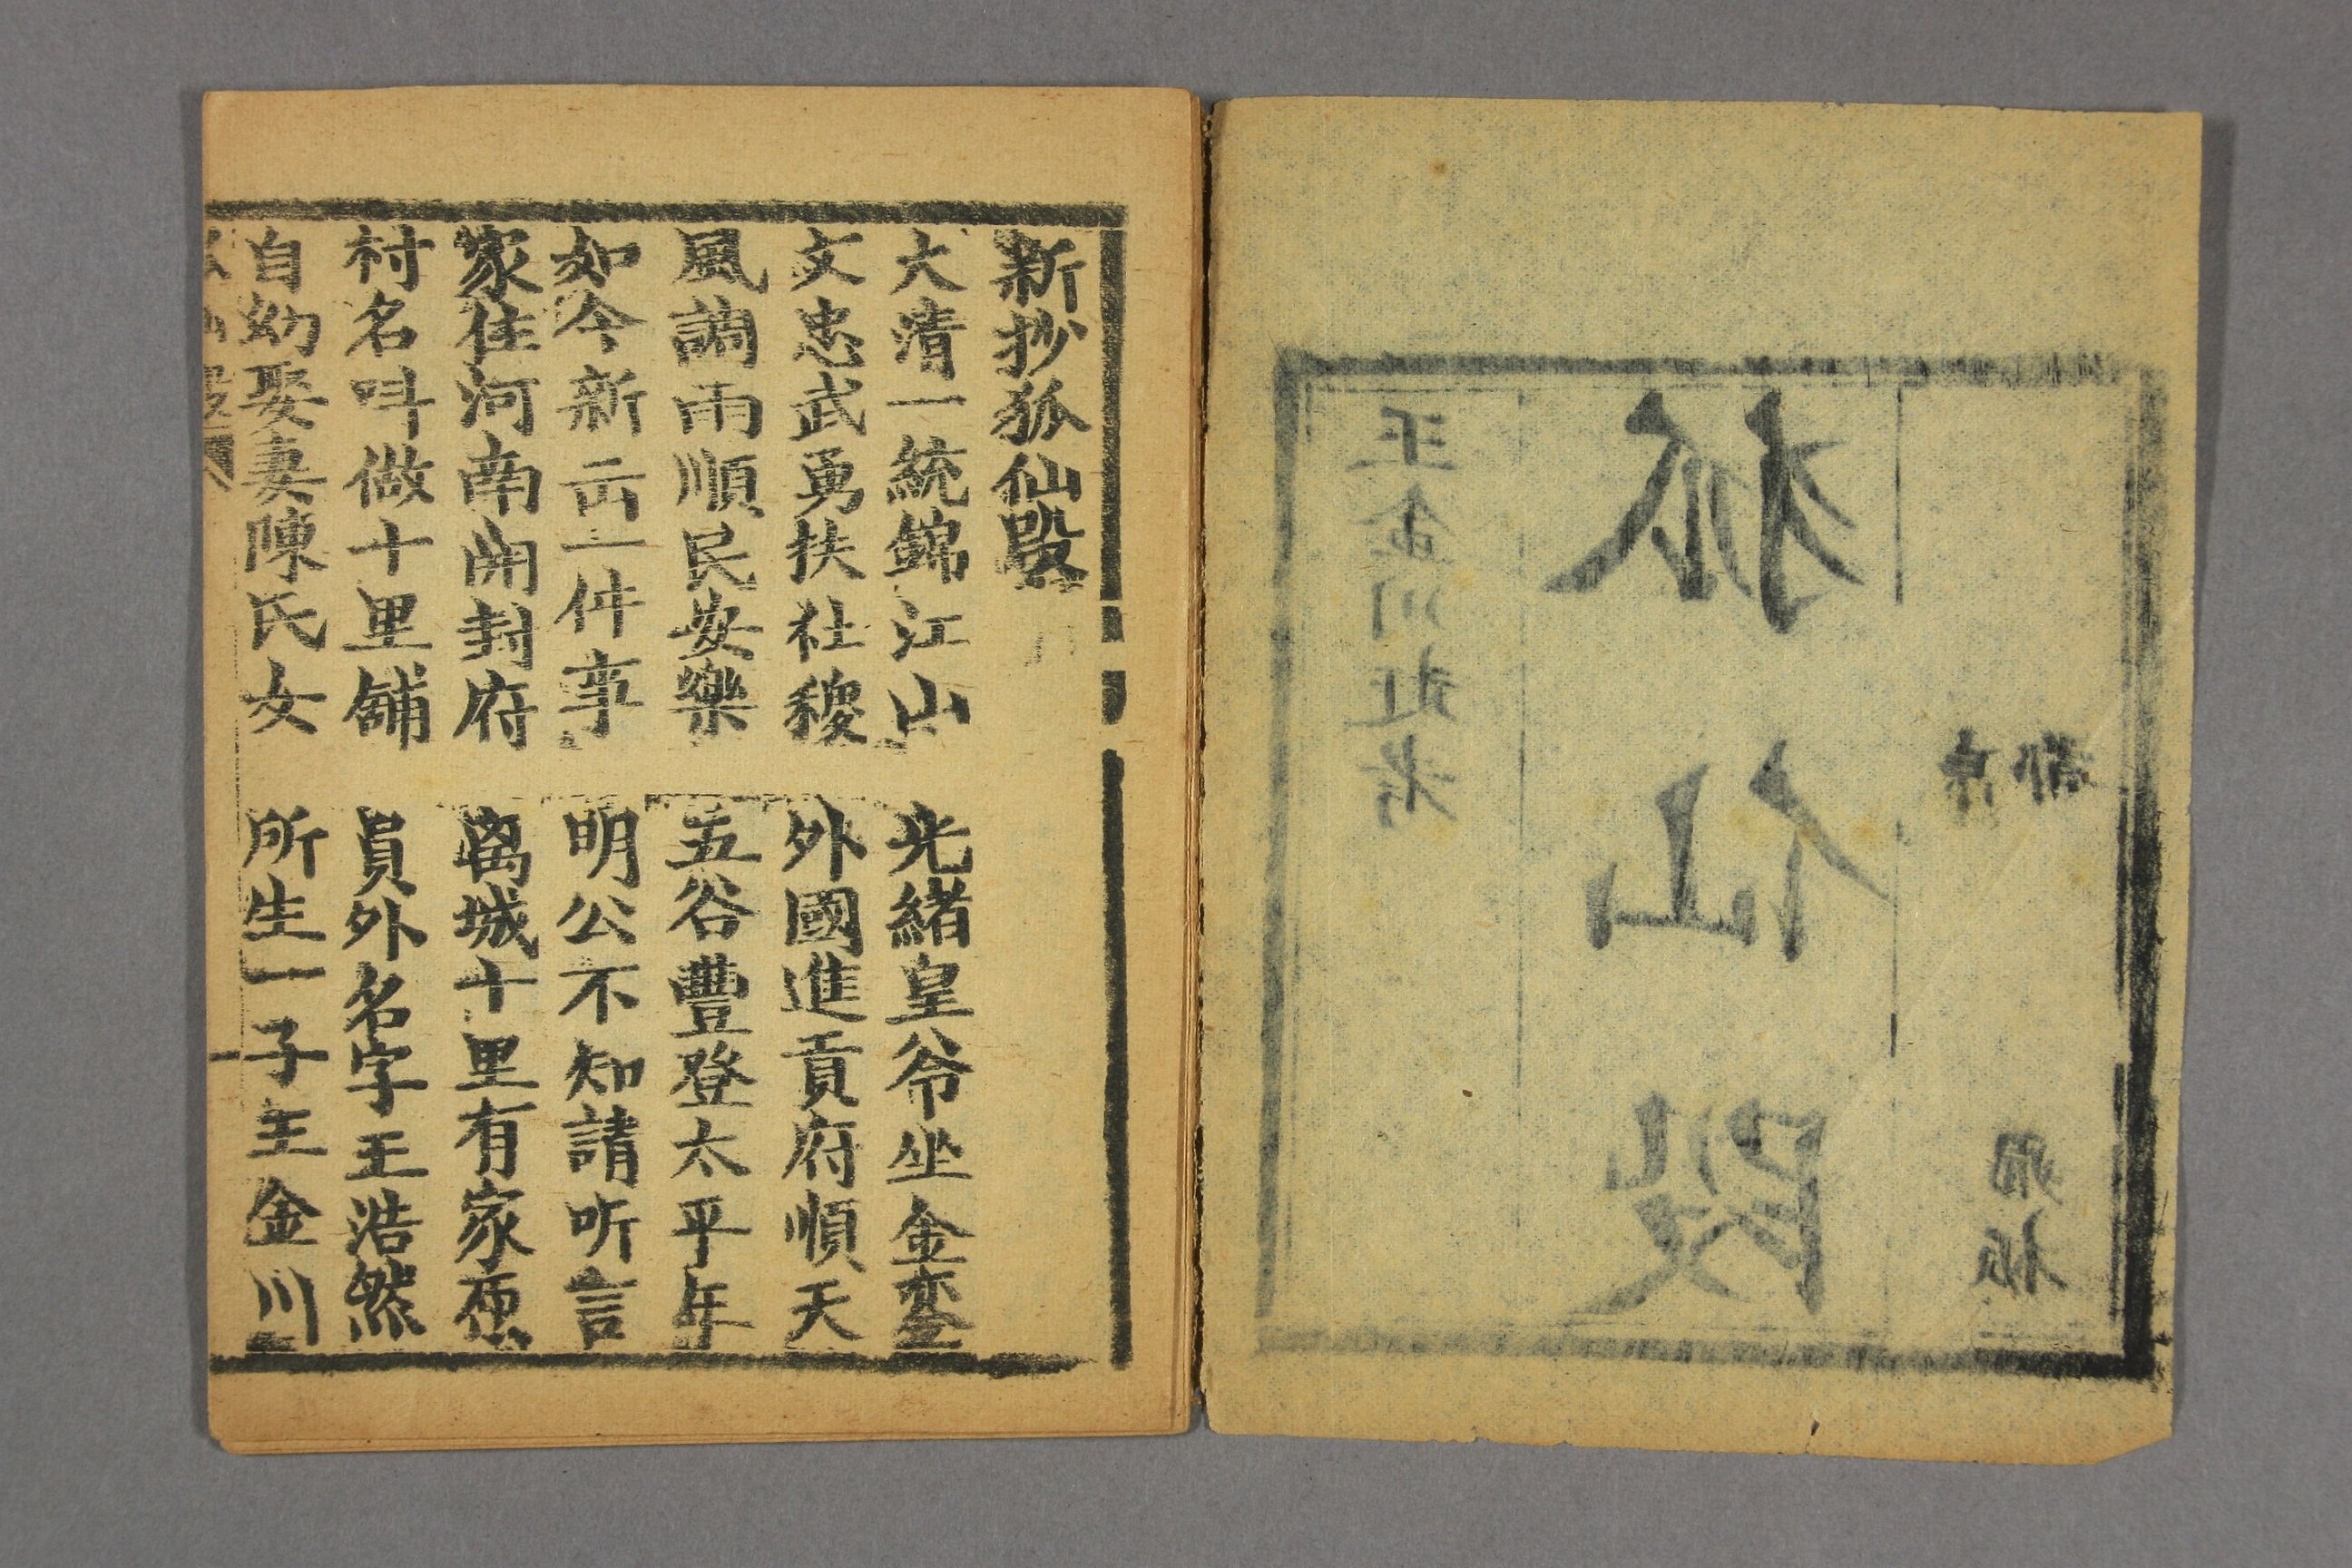 京都
狐仙段
王金川赶考
新抄狐仙段
大清一統錦江山　光緒皇爷坐金銮
文忠武勇扶社稷　外國進貢府順天
風調雨順民安樂　五谷豊登太平年
如今新出一件事　明公不知請听言
家住河南開封府　离城十里有家
村名叫做十里舖　員外名字王浩然
自幼娶妻陳氏女　所生一子王金川